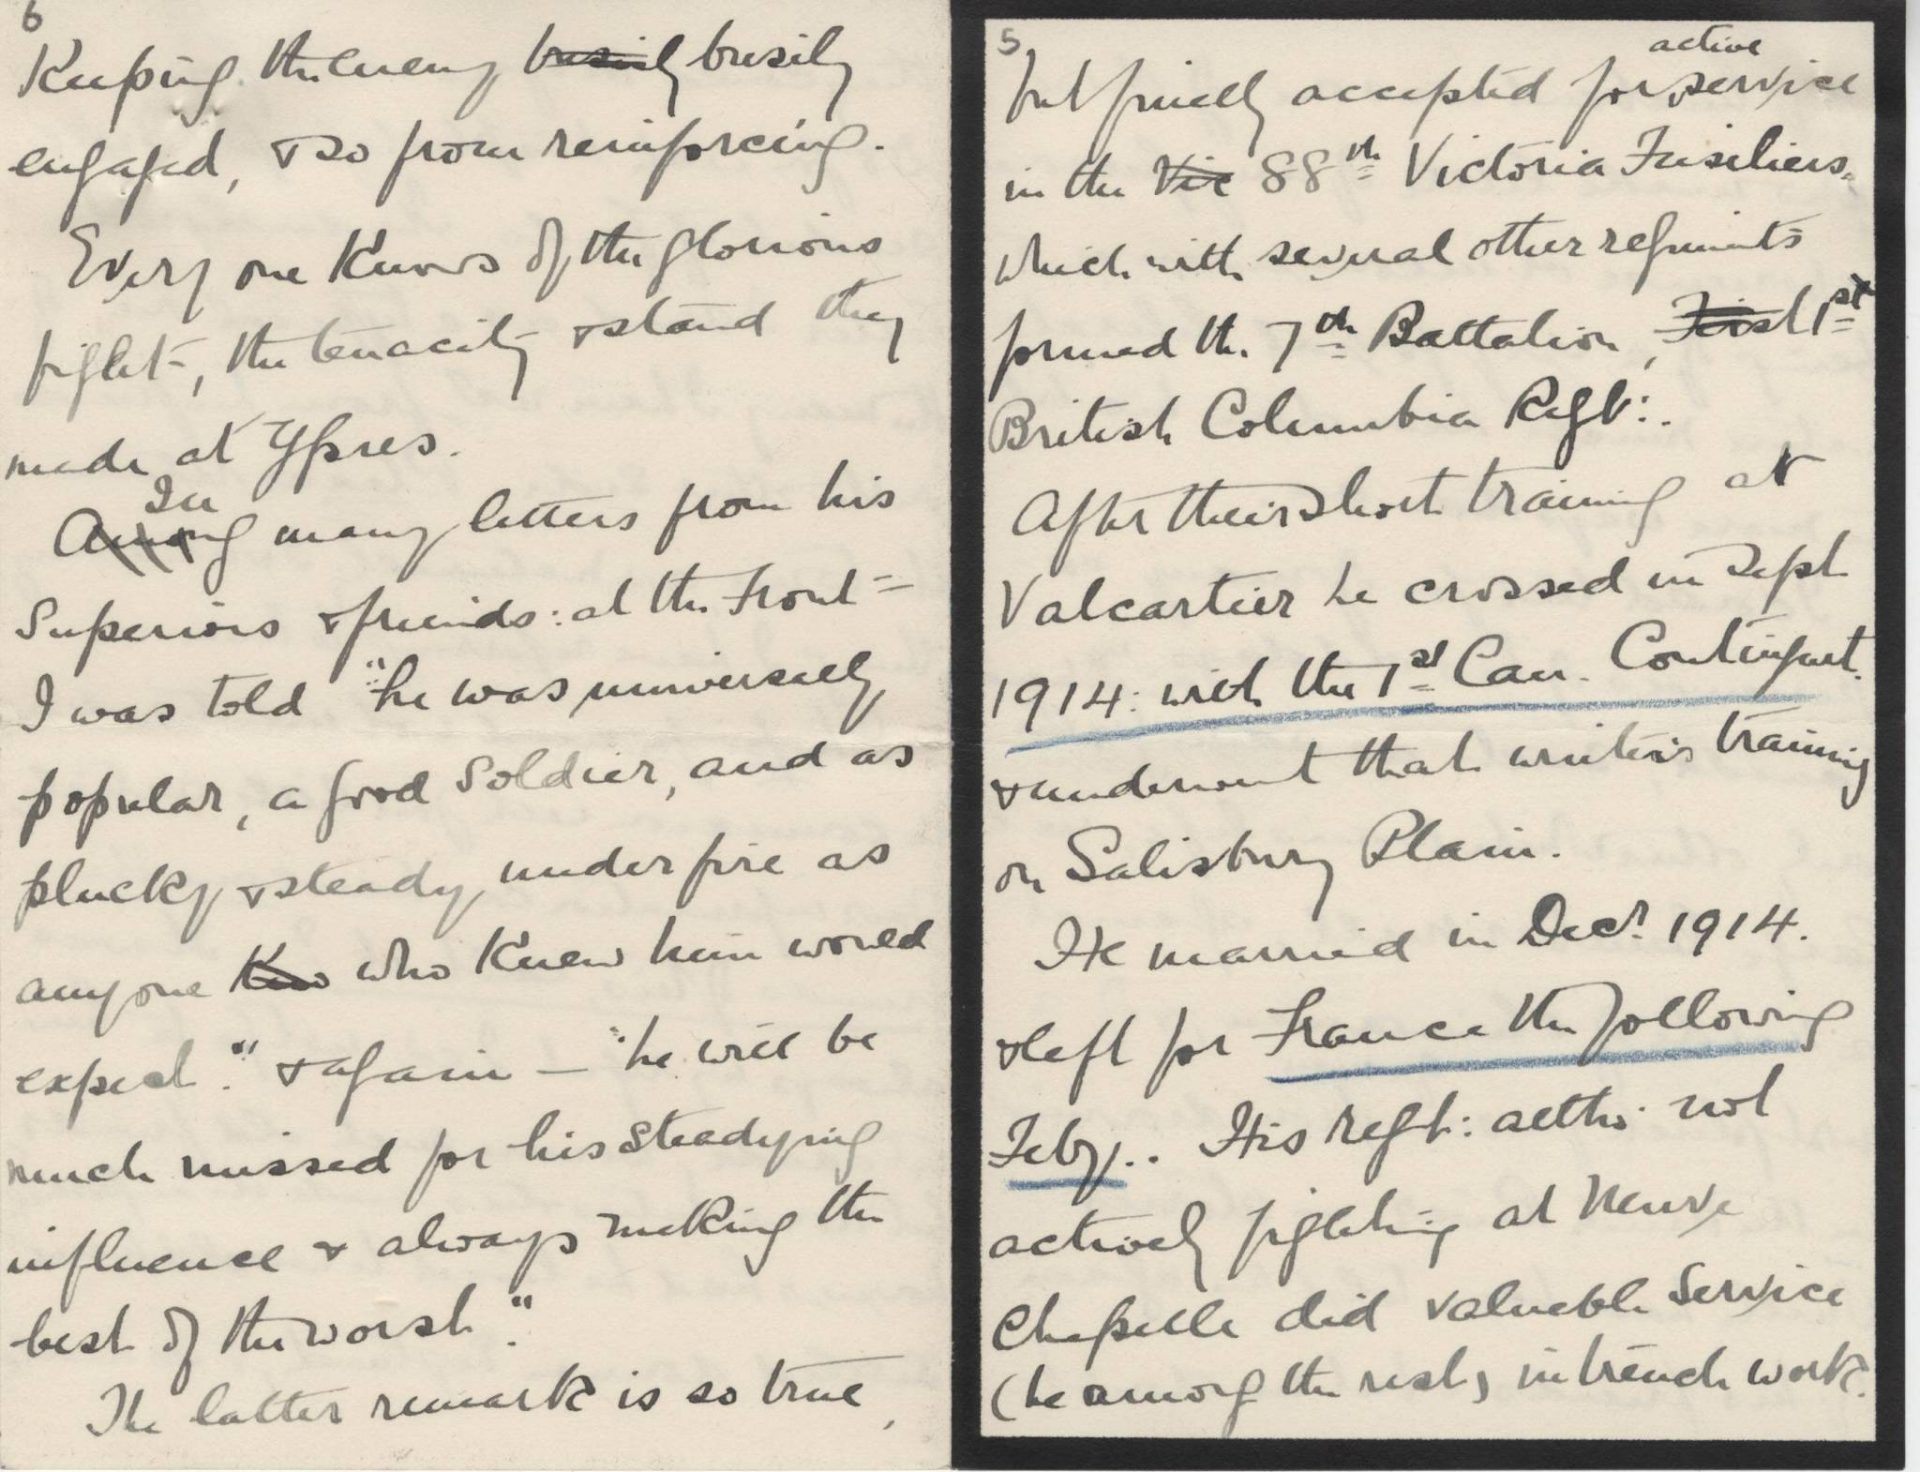 5
but finally accepted for active service
in the Vic 88th Victoria Fusiliers,
which with several other regiments
formed the 7th Battalion, First 1st
British Columbia Regt:.
After their short training at
Valcartier he crossed in Sept
1914: with the 1st Can. Contingent.
& underwent that winter's training
on Salisbury Plain.
He married in Decr. 1914.
& left for France the following
Feby.. His regt: altho: not
actively fighting at Neuve
Chapelle did valuable service
(he among the rest) in trench work.
6
Keeping the enemy busily busily
engaged, & so from reinforcing.
Every one knows of the glorious
fight, the tenacity & stand they
made at Ypres.
In
Among many letters from his
Superiors & friends: at the Front =
I was told "he was universally
popular, a good soldier, and as
plucky & steady under fire as
anyone Kno who knew him would
expect." & again — "he will be
much missed for his steadying
influence & always making the
best of the worst."
The latter remark is so true,